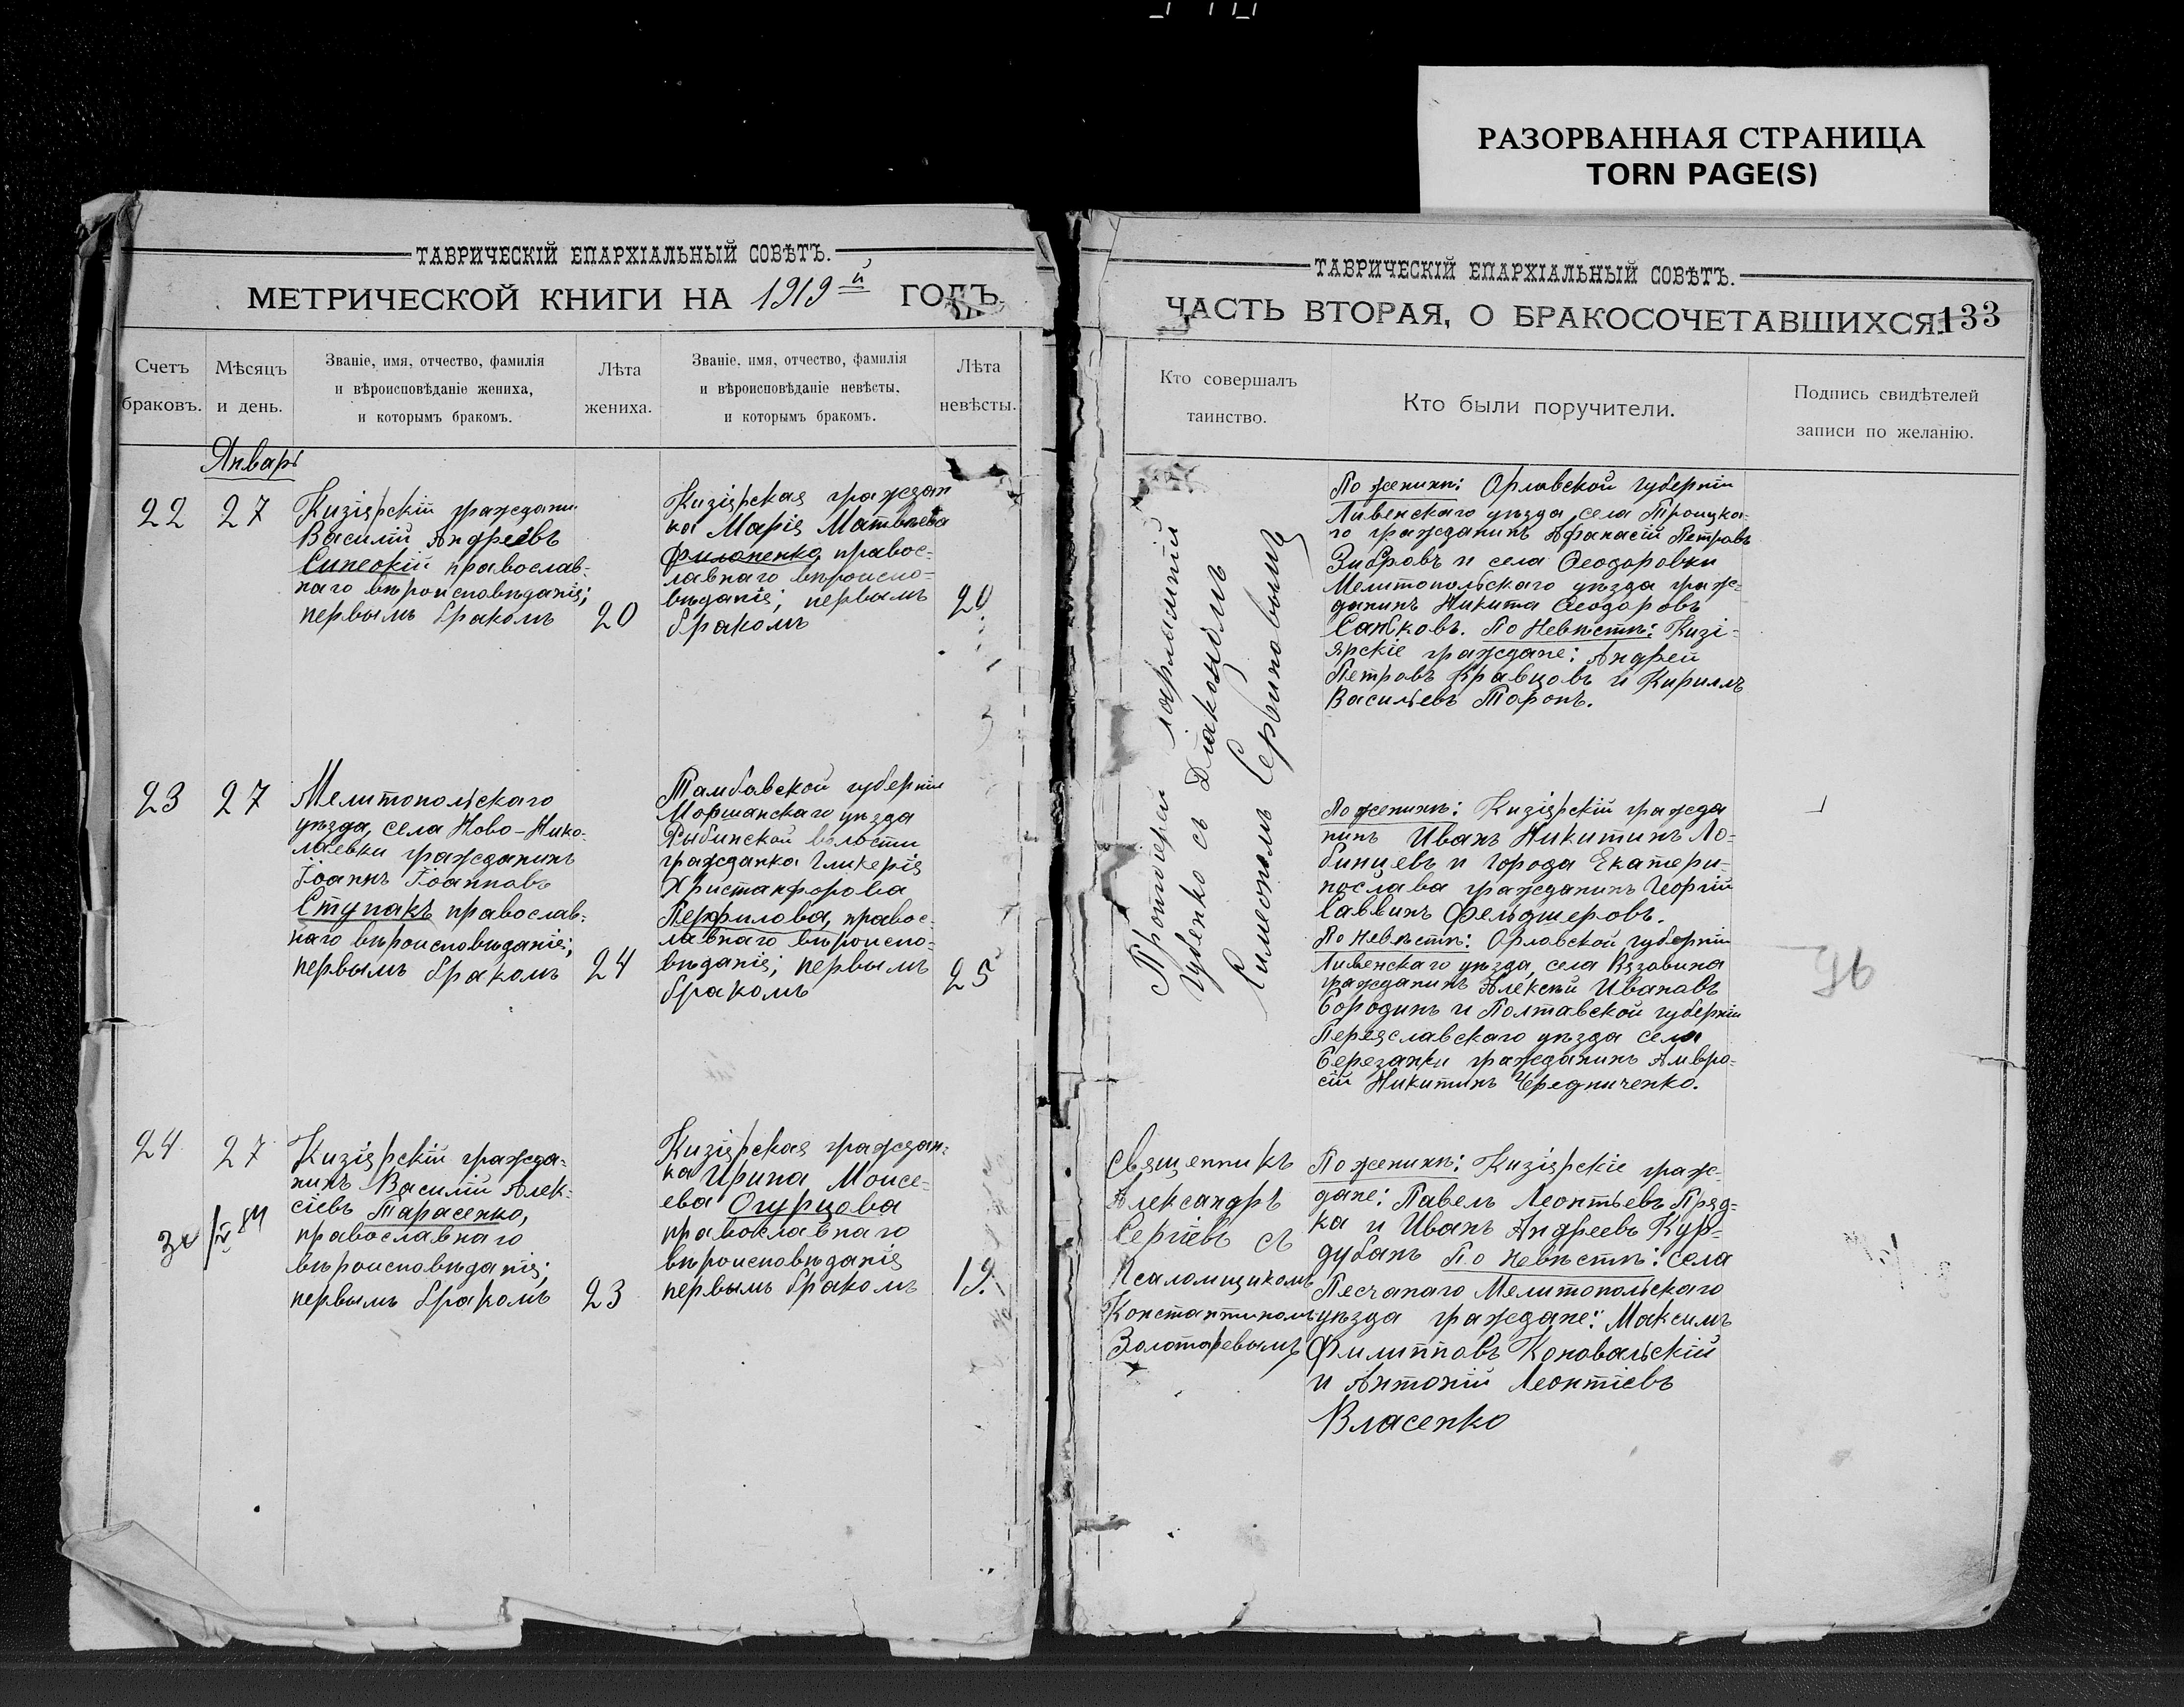 РАЗОРВАННАЯ СТРАНИЦА
TORN PAGE(S)
ТАВРИЧЕСКІЙ ЕПАРХІАЛЬНЫЙ СОВѢТЪ.
МЕТРИЧЕСКОЙ КНИГИ НА 1919й ГОДЪ
Счетъ браковъ.
Мѣсяцъ и день.
Званіе, имя, отчество, фамилія
и вѣроисповѣданіе жениха,
и которымъ бракомъ.
Лѣта
жениха.
Званіе, имя, отчество, фамилія
и вѣроисповѣданіе невѣсты,
и которымъ бракомъ.
Лѣта
невѣсты.
Январь
22
27
Кизіярскій граждани
Василій Андреевъ
Синеокій православ-
наго вѣроисповѣданія;
первымъ бракомъ
20
Кизіярская граждан
ка Марія Матвѣева
Филоненко правос-
лавнаго вѣроиспо-
вѣданія; первымъ
бракомъ
20
23
27
Мелитопольскаго
уѣзда, села Ново-Нико-
лаевки гражданинъ
Іоаннъ Іоанновъ
Ступакъ православ-
наго вѣроисповѣданія;
первымъ бракомъ
24
Тамбовской губерніи
Моршанскаго уѣзда
Рыбинской волости
гражданка Гликерія
Христанфорова
Перфилова, правос-
лавнаго вѣроиспо-
вѣданія; первымъ
бракомъ
25
24
27
Кизіярскій гражда-
нинъ Василій Алек-
сіевъ Тарасенко,
православнаго
вѣроисповѣданія;
первымъ бракомъ
23
Кизіярская граждан-
ка Ирина Моисе-
ева Огурцова
православнаго
вѣроисповѣданія
первымъ бракомъ
19.
ТАВРИЧЕСКІЙ ЕПАРХІАЛЬНЫЙ СОВѢТЪ.
ЧАСТЬ ВТОРАЯ, О БРАКОСОЧЕТАВШИХСЯ.
133
Кто совершалъ
таинство.
Кто были поручители.
Подпись свидѣтелей
записи по желанію.
Протоіерей
Губенко съ Діакономъ
Симеономъ
По женихѣ: Орловской губерніи
Ливенскаго уѣзда села Троицка-
го гражданинъ Афанасій Петровъ
Зибровъ и села Ѳеодоровки
Мелитопольскаго уѣзда граж-
данинъ Никита Ѳеодоровъ
Сапковъ. По Невѣстѣ: Кизі-
ярскіе граждане: Андрей
Петровъ Кравцовъ и Кириллъ
Васильевъ Торонъ.
По женихѣ: Кизіярскій гражда
нинъ Иванъ Никитинъ Ло-
бинцевъ и города Екатери-
нослава гражданинъ Георгій
Саввинъ Фельдшеровъ.
По невѣстѣ: Орловской губерніи
Ливенскаго уѣзда, села Вязовика
гражданинъ Алексѣй Ивановъ
Бородинъ и Полтавской губерніи
Переяславскаго уѣзда села
Березанки гражданинъ Амвро-
сій Никитинъ Чередниченко.
Священникъ
Александръ
Сергіевъ съ
Псаломщикомъ
Константиномъ
Золотаревымъ
По женихѣ: Кизіярскіе граж-
дане: Павелъ Леонтьевъ Пряд-
ка и Иванъ Андреевъ Кур-
дубанъ По невѣстѣ: села
Песчанаго Мелитопольскаго
уѣзда граждане: Максимъ
Филипповъ Коновальскій
и Антоній Леонтіевъ
Власенко